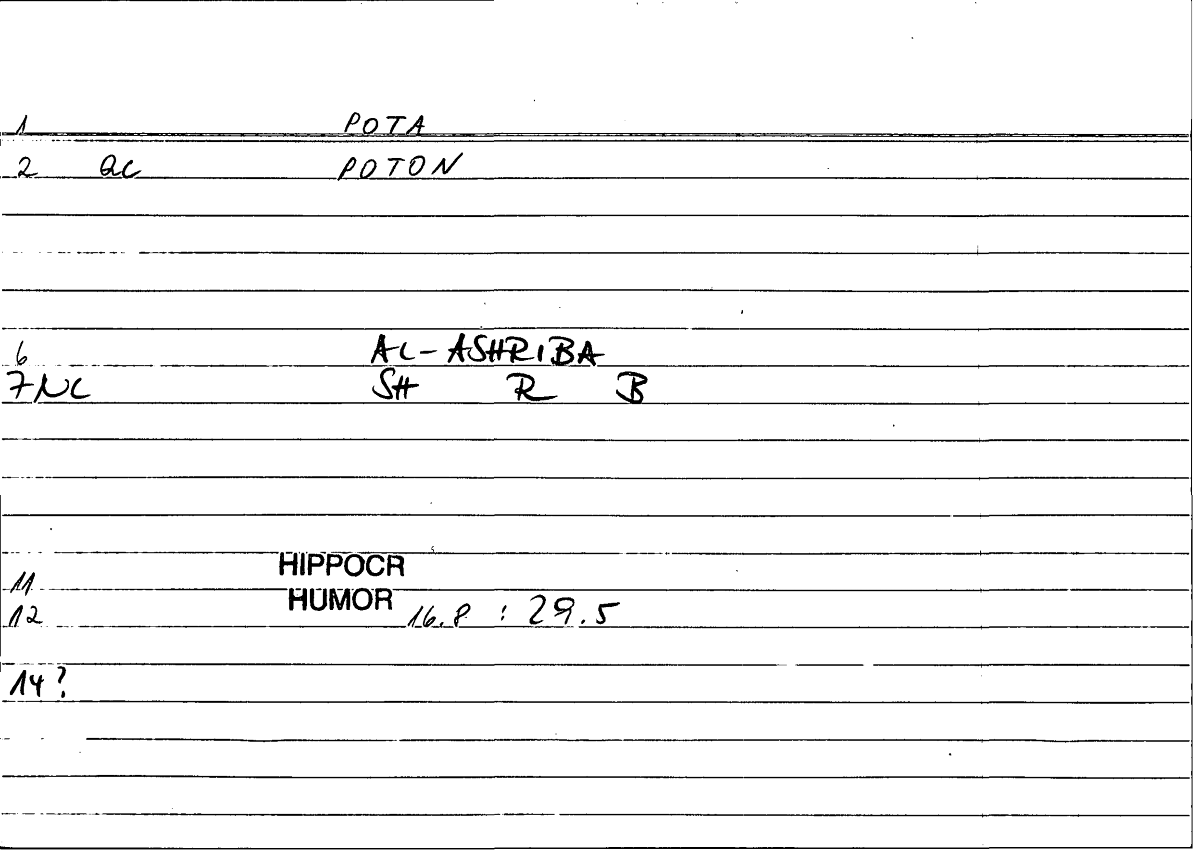 1 POTA
2 QC POTON
6 AL-ASHRIBA
7 NC SH R B
11 HIPPOCR
12 HUMOR 16.8 : 29.5
14?